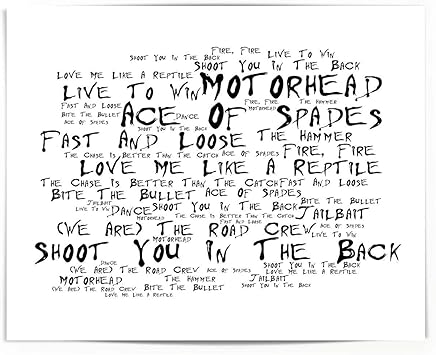 Fire, Fire Live To Win
Shoot You In The Back
Shoot You In The Back
Love Me Like A Reptile
Live To Win Motorhead
Fast And Loose Fire, Fire The Hammer
Bite The Bullet Dance Motorhead
Ace Of Spades Ace Of Spades
Shoot You In The Back
Fast And Loose The Hammer
The Chase Is Better Than The Catch Ace Of Spades Fire, Fire
Love Me Like A Reptile
The Chase Is Better Than The Catch Fast And Loose
Bite The Bullet Ace Of Spades
Jailbait Motorhead Bite The Bullet
Live To Win Dance Shoot You In The Back
The Chase Is Better Than The Catch Jailbait
(We Are) The Road Crew Ace Of Spades
Motorhead Live To Win
Shoot You In The Back
Dance Shoot You In The Back
(We Are) The Road Crew Ace Of Spades Love Me Like A Reptile
Motorhead The Hammer Jailbait
(We Are) The Road Crew Bite The Bullet Shoot You In The Back
Love Me Like A Reptile